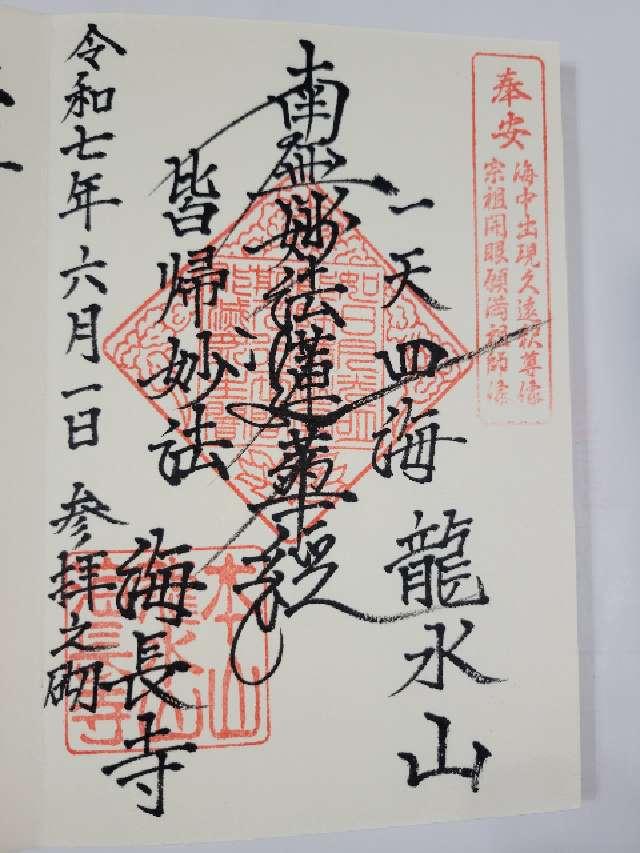 奉安
海中出現久遠釈尊像
宗祖開眼願満祖師像
一天四海
龍水山
南無妙法蓮華経
皆帰妙法
海長寺
本山
龍水山
海長寺
令和七年六月一日 参拝之砌